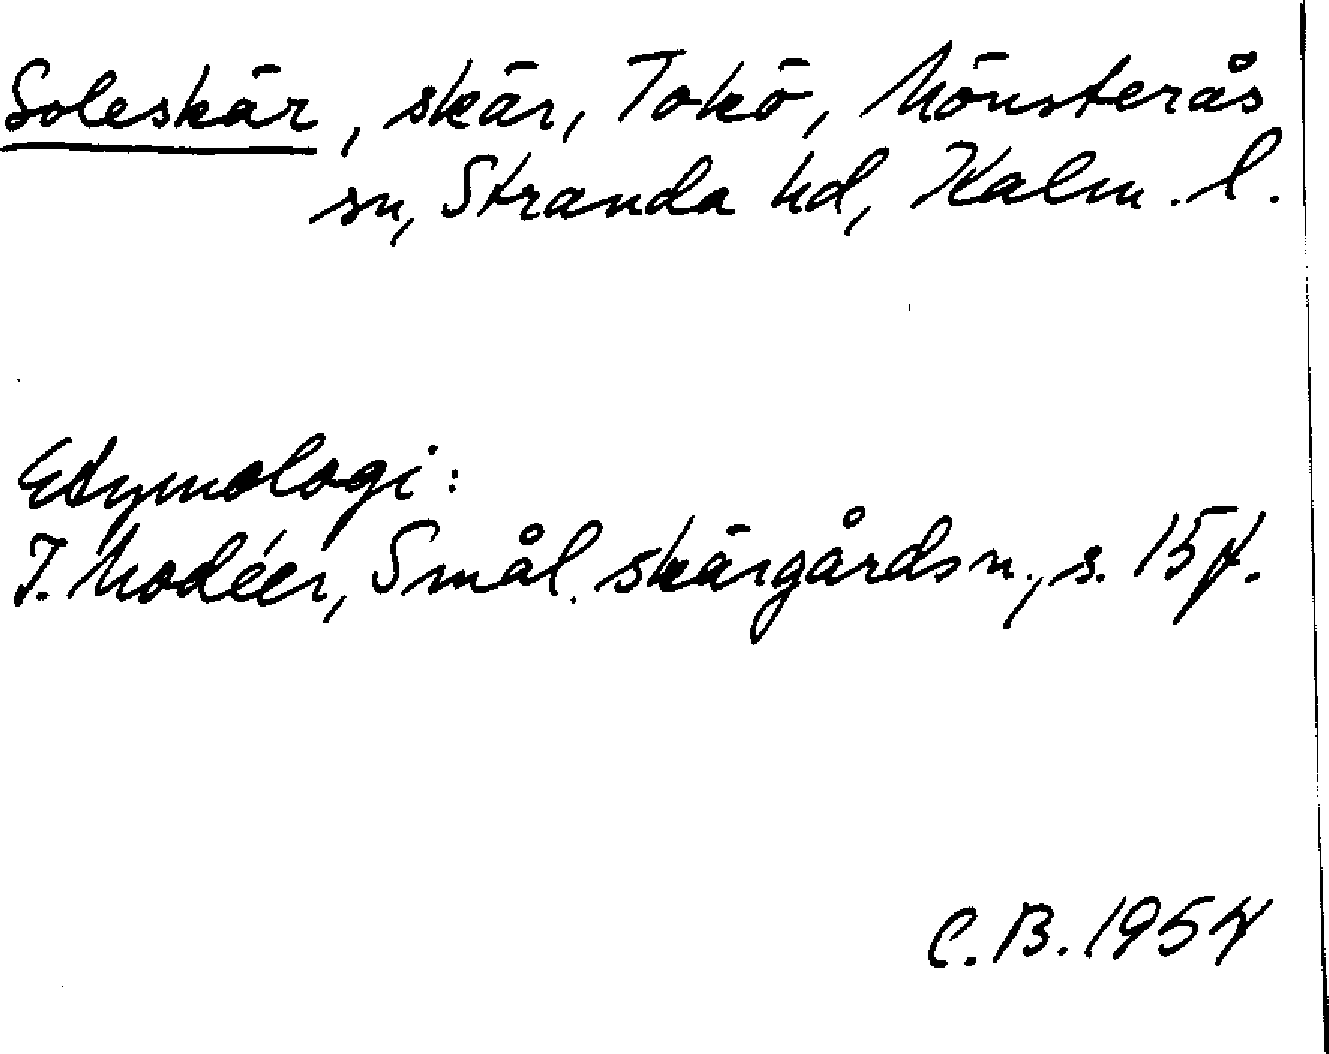 Soleskär, skär, Tokö, Mönsterås
sn, Stranda hd, Kalm. l.
Etymologi:
I. Modéer, Smål. skärgårdsn., s. 15 f.
C. B. 1957